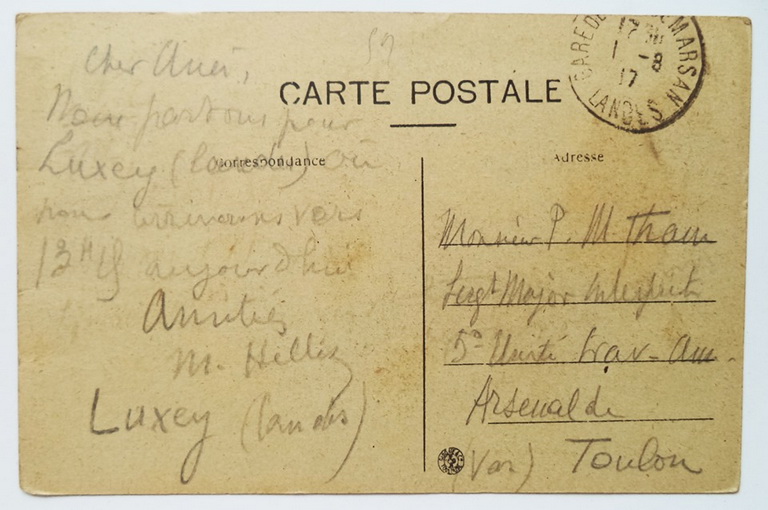 52
Cher Ami,
CARTE POSTALE
Nous partons pour
Luxey (Landes) où
Correspondance
nous arriverons vers
13H 15 aujourd'hui
Amitiés
M. Hellis
Luxey (Landes)
GARE DE MARSAN
1 -8
17
LANDES
Adresse
Monsieur P. M. Tham
Sergt Major Interprète
5e Unité Trav- Am-
Arsenal de
(Var) Toulon